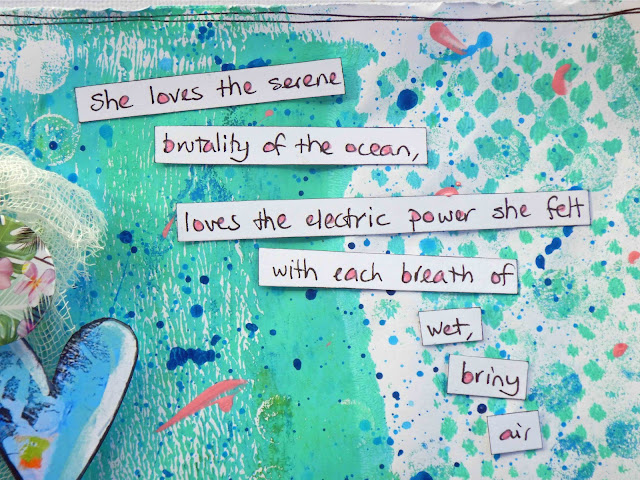 She loves the serene
brutality of the ocean,
loves the electric power she felt
with each breath of
wet,
briny
air